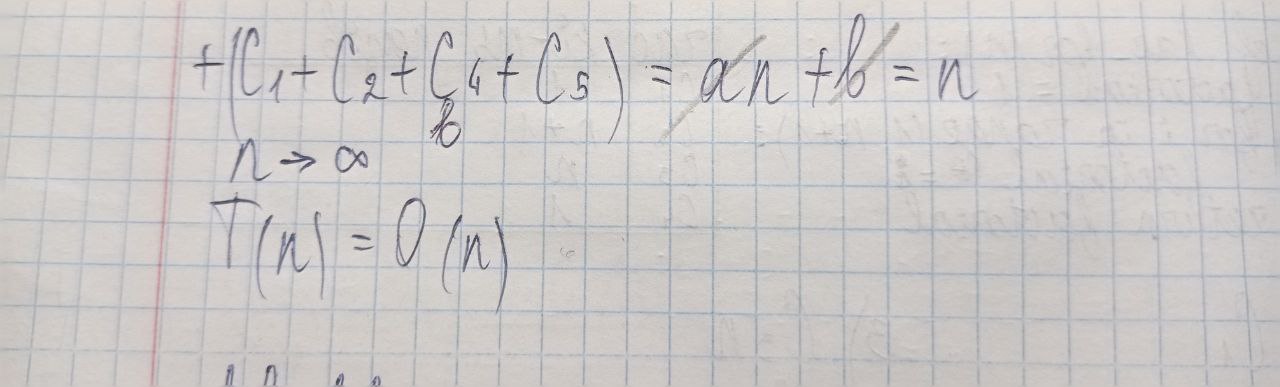 +(C₁ + C₂ + C₄ + C₅) = an + b = n
b
n → ∞
T(n) = O(n)